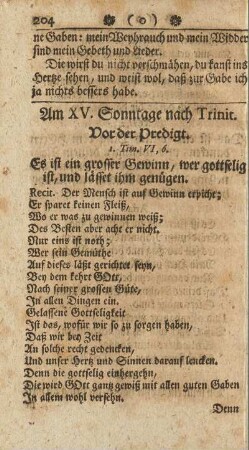 204 (o)
ne Gaben: mein Weyhrauch und mein Widder
sind mein Gebeth und Lieder.
Die wirst du nicht verschmähen, du kanst ins
Hertze sehen, und weist wol, daß zur Gabe ich
ja nichts bessers habe.
Am XV. Sonntage nach Trinit.
Vor der Predigt.
1. Tim. VI, 6.
Es ist ein grosser Gewinn, wer gottselig
ist, und lässet ihm genügen.
Recit. Der Mensch ist auf Gewinn erpicht;
Er sparet keinen Fleiß,
Wo er was zu gewinnen weiß;
Des Besten aber acht er nicht.
Nur eins ist noth;
Wer sein Gemüthe
Auf dieses läßt gerichtet seyn,
Bey dem kehrt GOtt,
Nach seiner grossen Güte,
In allen Dingen ein.
Gelassene Gottseligkeit
Ist das, wofür wir so zu sorgen haben,
Daß wir bey Zeit
An solche recht gedencken,
Und unser Hertz und Sinnen darauf lencken.
Denn die gottselig einhergehn,
Die wird GOtt gantz gewiß mit allen guten Gaben
In allem wohl versehn.
Denn